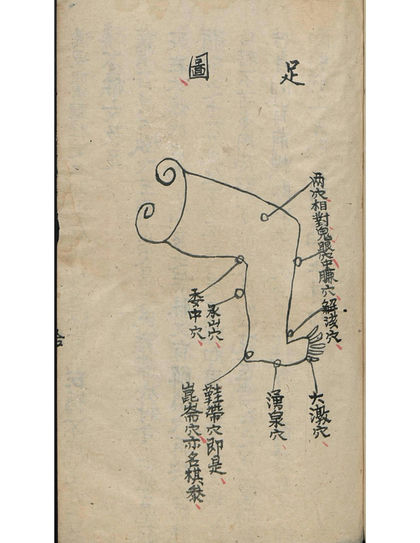 足圖
兩穴相對鬼眼穴中臁穴
解谿穴
大激穴
湧泉穴
委中穴
承山穴
鞋帶穴即是
崑崙穴亦名棋